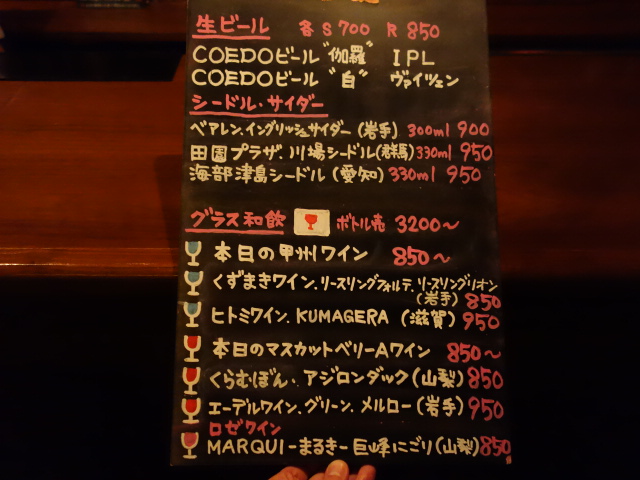 生ビール 各S700 R850
COEDOビール"伽羅" IPL
COEDOビール"白" ヴァイツェン
シードル・サイダー
ベアレン、イングリッシュサイダー(岩手) 300ml 900
田園プラザ、川場シードル(群馬) 330ml 950
海部津島シードル(愛知) 330ml 950
グラス和飲 ボトル売 3200〜
本日の甲州ワイン 850〜
くずまきワイン、リースリングフォルテ、リースリングリオン
(岩手) 850
ヒトミワイン、KUMAGERA(滋賀) 950
本日のマスカットベリーAワイン 850〜
くらむぼん、アジロンダック(山梨) 850
エーデルワイン、グリーン、メルロー(岩手) 950
ロゼワイン
MARQUI-まるき-巨峰にごり(山梨) 850